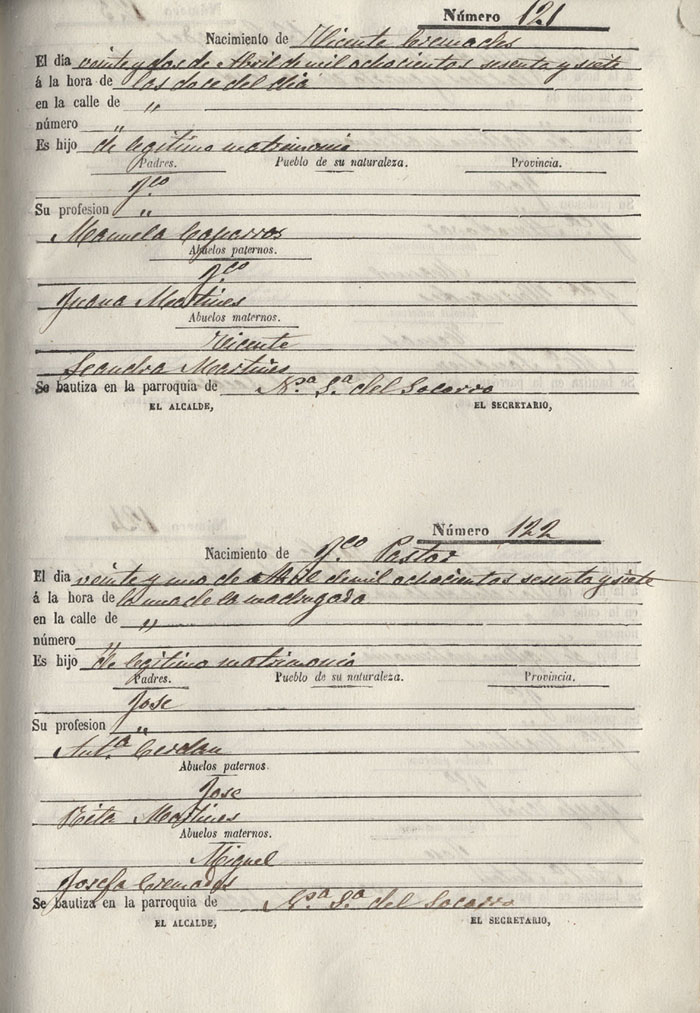 Número 121
Nacimiento de Vicente Cremades
El dia veinte y dos de Abril de mil achacientos sesenta y siete
á la hora de las doce del dia
en la calle de "
número "
Es hijo de legitimo matrimonio
Padres. Pueblo de su naturaleza. Provincia.
Fco
Su profesion "
Manuela Caparros
Abuelos paternos.
Fco
Juana Martines
Abuelos maternos.
Vicente
Leandra Martines
Se bautiza en la parroquia de Nª Sª del Socorro
EL ALCALDE, EL SECRETARIO,
Número 122
Nacimiento de Fco Pastor
El dia veinte y uno de Abril de mil achacientos sesenta y siete
á la hora de la una de la madrugada
en la calle de "
número "
Es hijo de legitimo matrimonio
Padres. Pueblo de su naturaleza. Provincia.
Jose
Su profesion "
Antª Cerdan
Abuelos paternos
Jose
Rita Martines
Abuelos maternos.
Miguel
Josefa Cremades
Se bautiza en la parroquia de Nª Sª del Socorro
EL ALCALDE, EL SECRETARIO,